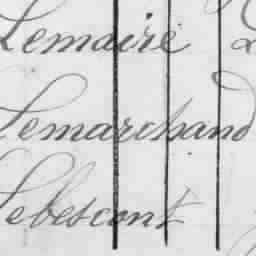 Lemaire
Lemarchand
Lebescont